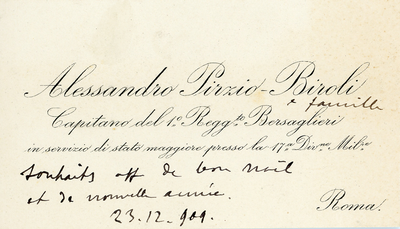 Alessandro Pirzio-Biroli
& famille
Capitano del 1º Reggto Bersaglieri
in servizio di stato maggiore presso la 17ª Divne Milre
souhaits aff de bon noël
et de nouvelle année.
Roma.
23.12.909.